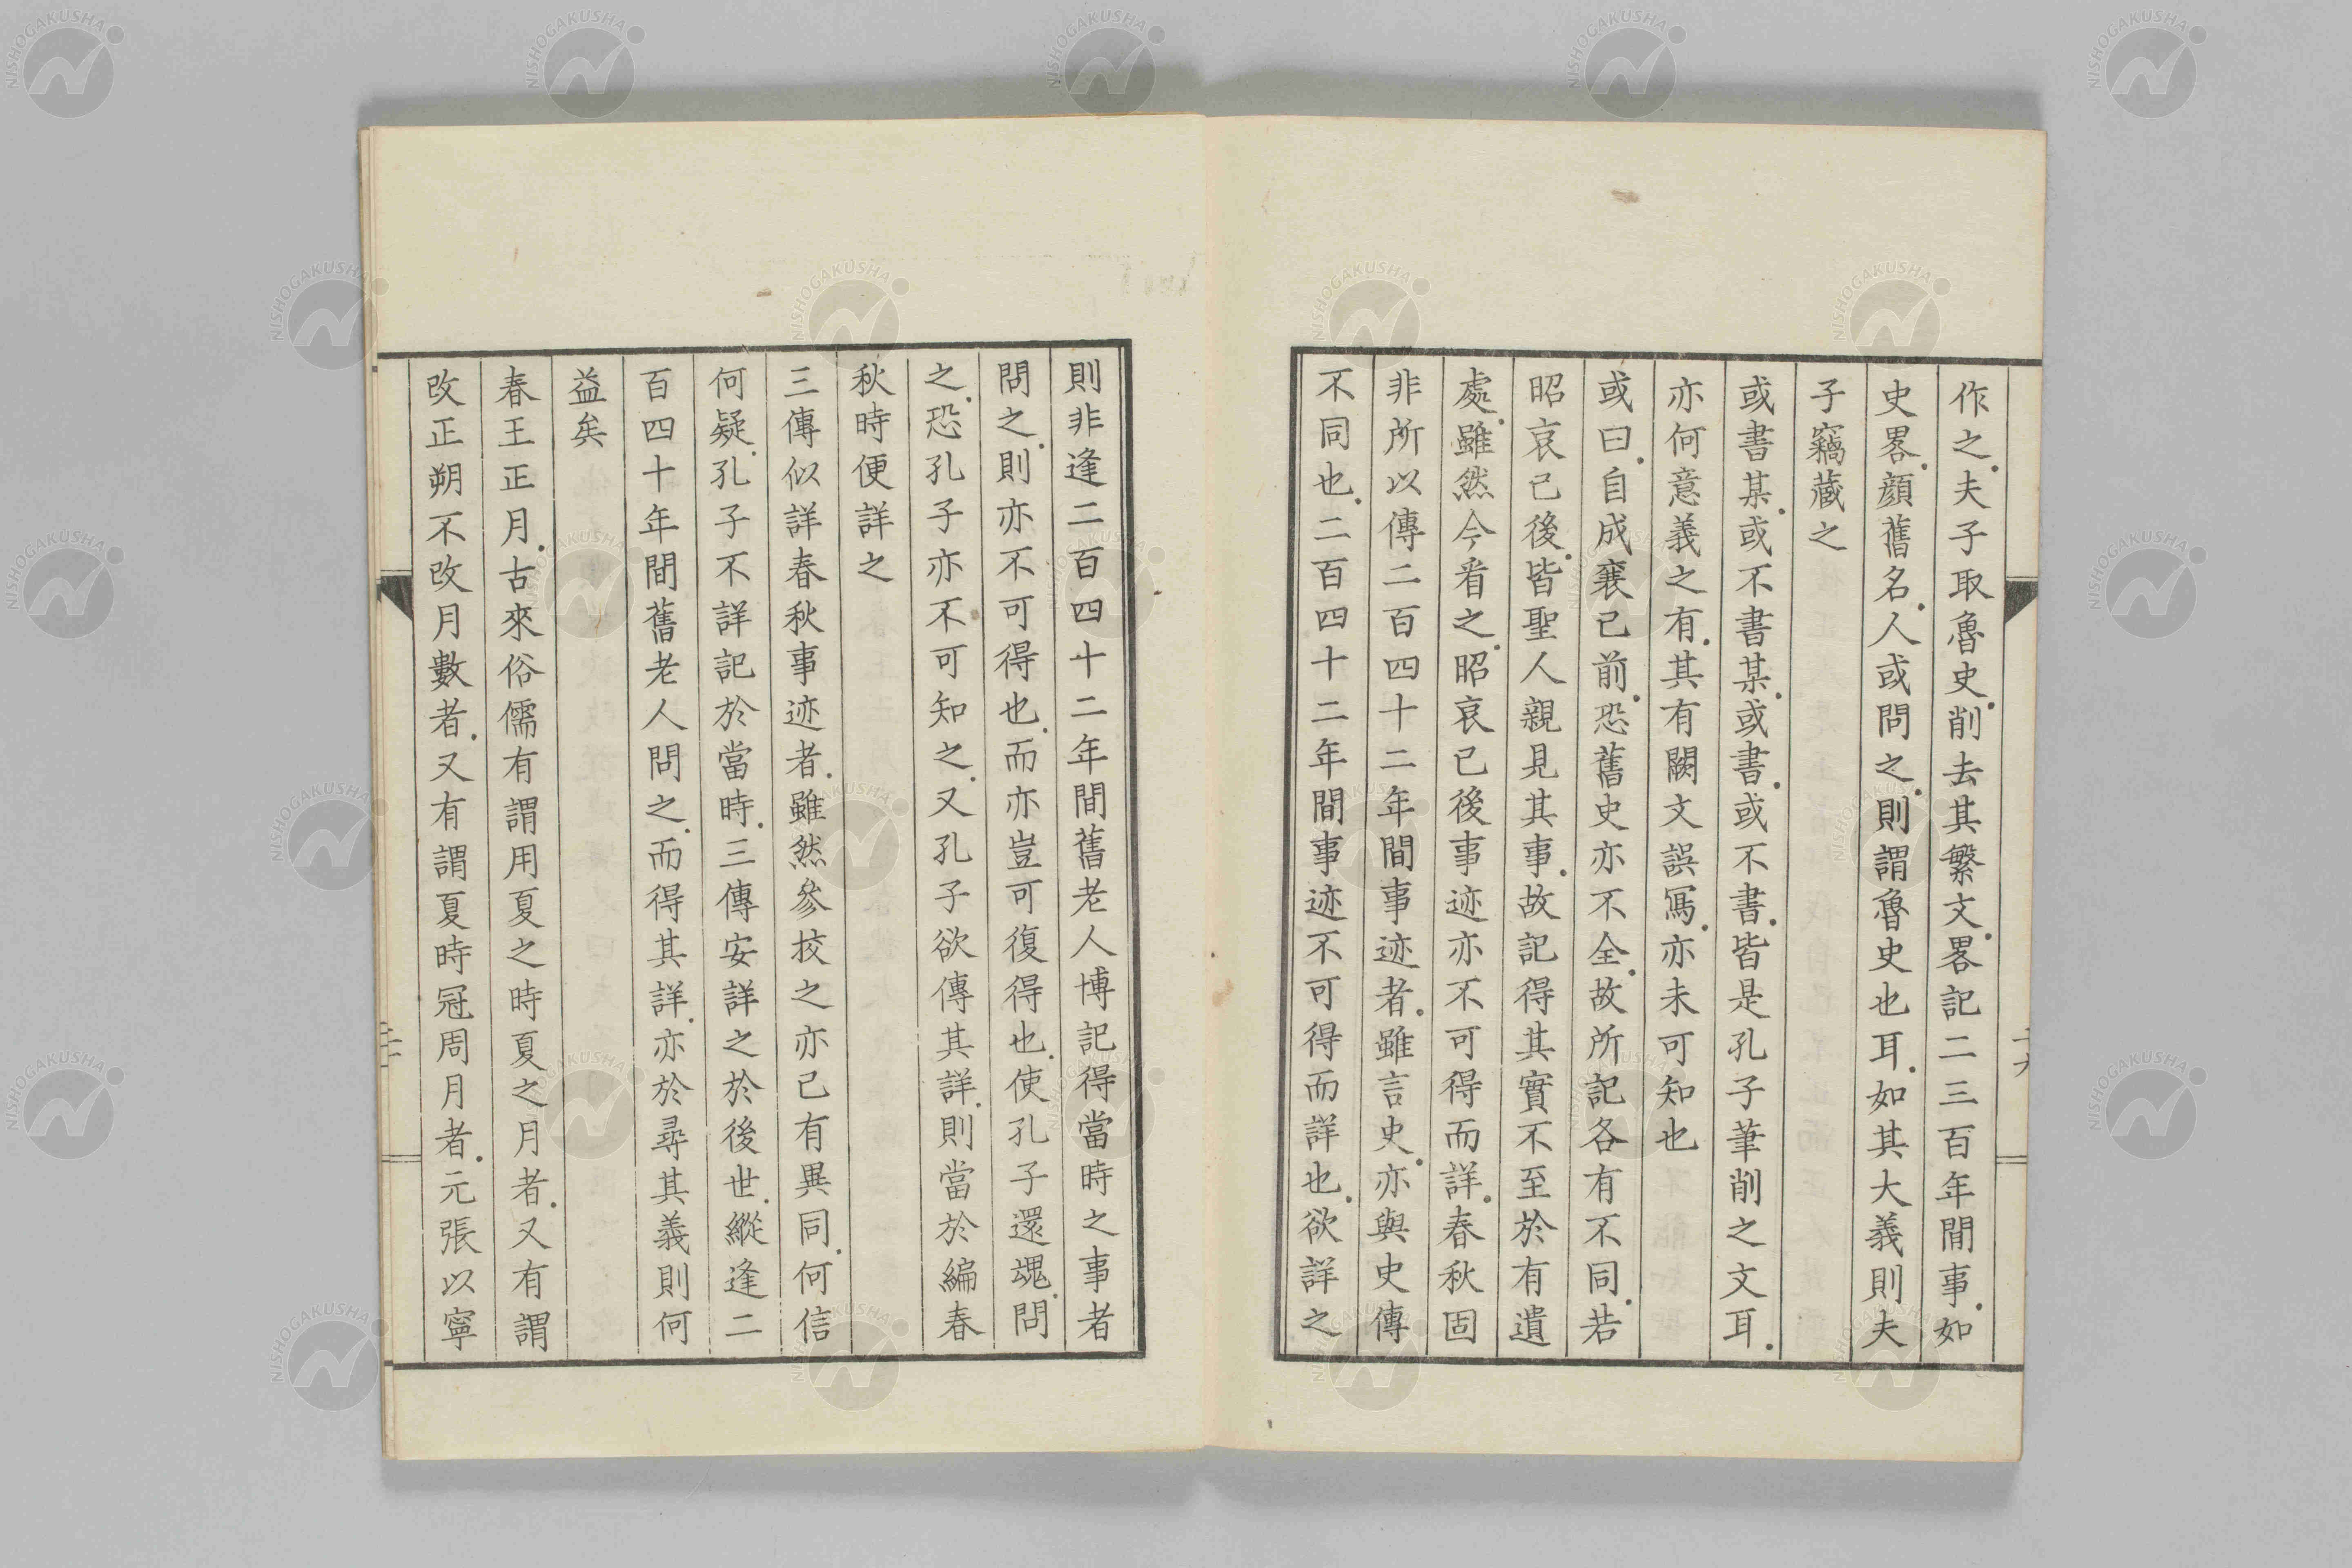 作之。夫子取魯史。削去其繁文。畧記二三百年間事。如
史畧。顔舊名。人或問之。則謂魯史也耳。如其大義則夫
子竊藏之
或書某。或不書某。或書。或不書。皆是孔子筆削之文耳。
亦何意義之有。其有闕文誤寫。亦未可知也
或曰。自成襄已前。恐舊史亦不全。故所記各有不同。若
昭哀已後。皆聖人親見其事。故記得其實不至於有遺
處。雖然今看之。昭哀已後事迹亦不可得而詳。春秋固
非所以傳二百四十二年間事迹者。雖言史。亦與史傳
不同也。二百四十二年間事迹不可得而詳也。欲詳之
則非逢二百四十二年間舊老人博記得當時之事者
問之。則亦不可得也。而亦豈可復得也。使孔子還魂。問
之。恐孔子亦不可知之。又孔子欲傳其詳。則當於編春
秋時便詳之
三傳似詳春秋事迹者。雖然參挍之亦已有異同。何信
何疑。孔子不詳記於當時。三傳安詳之於後世。縱逢二
百四十年間舊老人問之。而得其詳。亦於尋其義則何
益矣
春王正月。古來俗儒有謂用夏之時夏之月者。又有謂
改正朔不改月數者。又有謂夏時冠周月者。元張以寧
NISHOGAKUSHA